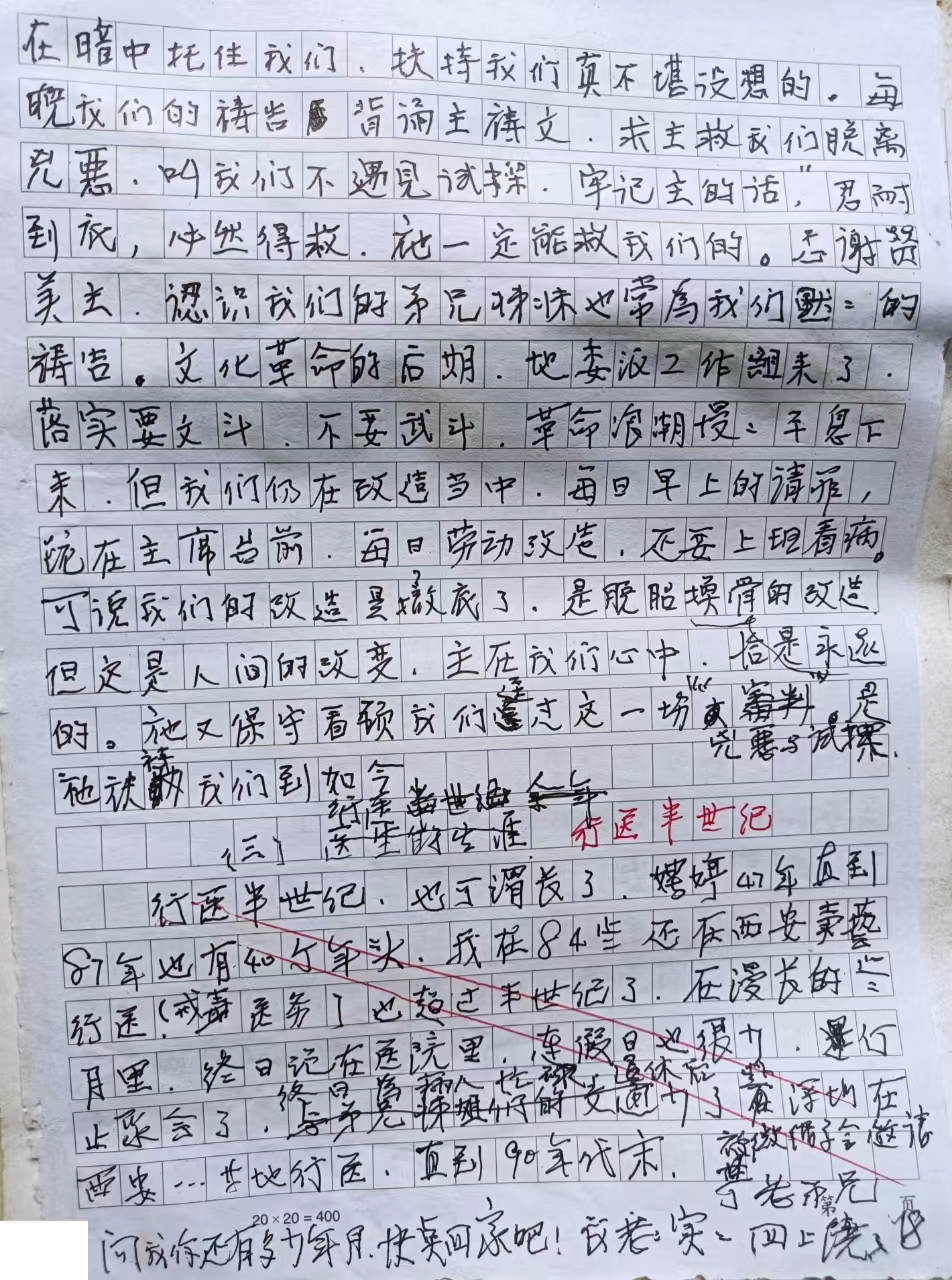 在暗中托住我们、扶持我们真不堪设想的。每
晚我们的祷告 背诵主祷文、求主救我们脱离
兇惡、叫我们不遇見试探、牢记主的话，"忍耐
到底，必然得救、祂一定能救我们的。感谢赞
美主、認识我们的弟兄姊妹也常為我们默=的
祷告。文化革命的后期、地委派工作組来了、
落实要文斗、不要武斗、革命浪潮慢=平息下
来、但我们仍在改造当中、每日早上的请罪，
跪在主席台前、每日劳动改造、还要上班看病。
可说我们的改造是撤底了、是脱胎换骨的改造
但这是人间的改变、主在我们心中、恰是永远
的。祂又保守看顾我们 过这一场"審判"是
兇惡与试探、
祂扶 我们到如今
(三) 医生的生涯
行医半世紀
行医半世紀、也可谓長了、 47年直到
87年也有40个年头、我在84 还在西安
行医(戒毒医务)也超过半世纪了、在漫長的
月里、终日 在医院里、連假日也很少、
终日為病人忙碌、
止聚会了、与弟兄姊妹们的交通少了 在深圳在
西安…等地行医、直到90年代末、
老弟兄
问我你还有多少年月、快奌回家吧！我老=实=
20×20=400
第 18 页